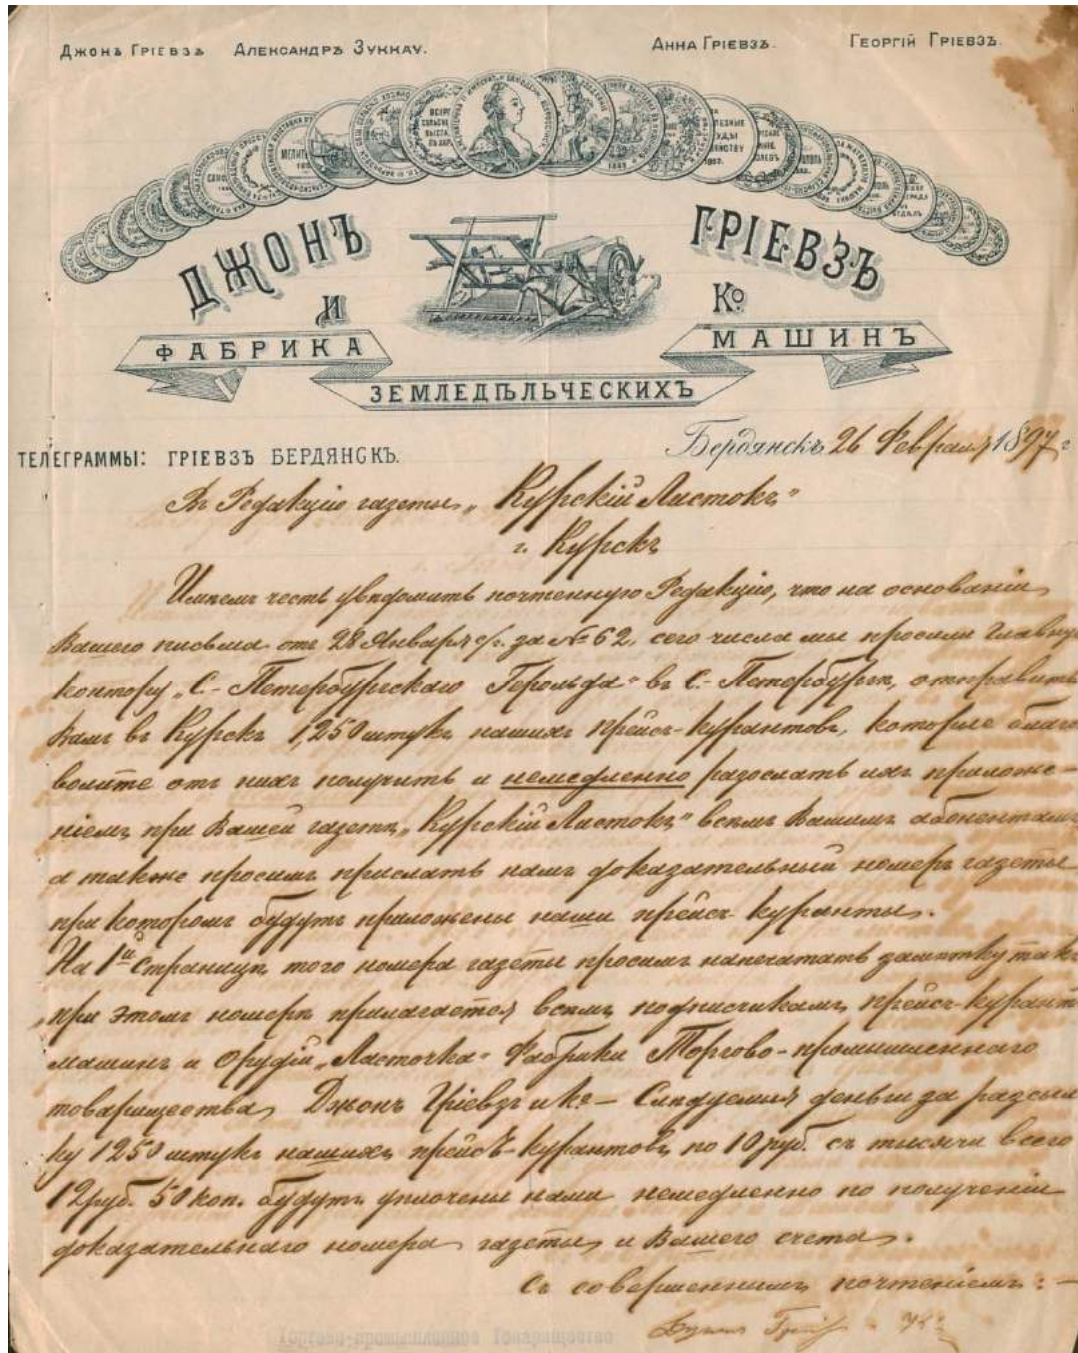 Джонъ Гріевзъ Александръ Зуккау. Анна Гріевзъ. Георгій Гріевзъ.
ДЖОНЪ ГРІЕВЗЪ
И Ко
ФАБРИКА МАШИНЪ
ЗЕМЛЕДѢЛЬЧЕСКИХЪ
Бердянскъ 26 Февраля 1897 г
ТЕЛЕГРАММЫ: ГРІЕВЗЪ БЕРДЯНСКЪ.
Въ Редакцію газеты „Курскій Листокъ"
г. Курскъ
Имѣемъ честь увѣдомить почтенную Редакцію, что на основаніи
Вашего письма отъ 28 Января с/г. за № 62, сего числа мы просили Главную
контору „С.-Петербургскаго Герольда" въ С.-Петербургѣ, отправить
Вамъ въ Курскъ 1,250 штукъ нашихъ прейсъ-курантовъ, которые благо
волите отъ нихъ получить и немедленно разослать ихъ приложе-
ніемъ при Вашей газетѣ „Курскій Листокъ" всѣмъ Вашимъ абонентамъ,
а также просимъ прислать намъ доказательный номеръ газеты
при которомъ будутъ приложены наши прейсъ-куранты.
На 1й страницѣ того номера газеты просимъ напечатать замѣтку такъ
„при этомъ номерѣ прилагается всѣмъ подписчикамъ прейсъ-курантъ
машинъ и орудій „Ласточка" Фабрики Торгово-промышленнаго
товарищества Джонъ Гріевзъ и Ко — Слѣдуемыя деньги за разсыл
ку 1250 штукъ нашихъ прейсъ-курантовъ по 10 руб. съ тысячи всего
12 руб. 50 коп. будутъ уплочены нами немедленно по полученіи
доказательнаго номера газеты и Вашего счета.
Съ совершеннымъ почтеніемъ: —
Торгово-промышленное Товарищество
Джонъ Гріевзъ и Ко